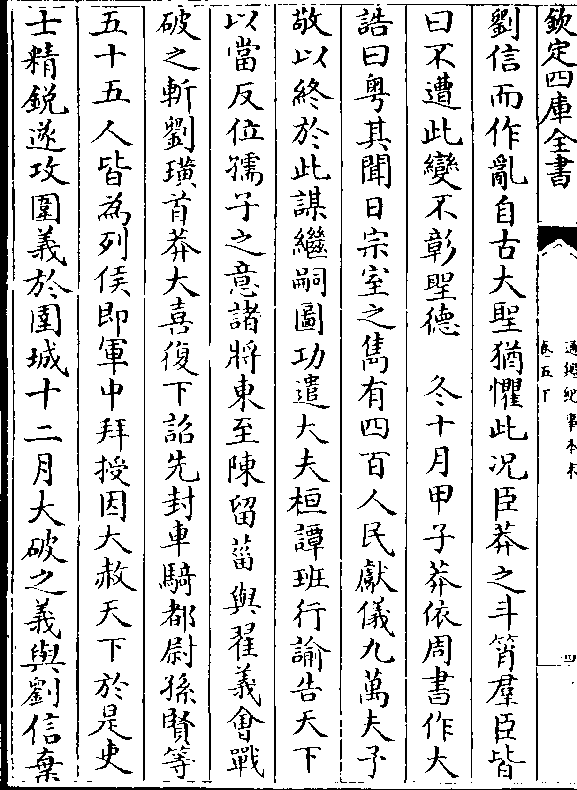 欽定四庫全書
通鑑紀事本末
卷五下
四
劉信而作亂自古大聖猶懼此况臣莽之斗筲羣臣皆
曰不遭此變不彰聖德　冬十月甲子莽依周書作大
誥曰粤其聞日宗室之雋有四百人民獻儀九萬夫予
敬以終於此謀繼嗣圖功遣大夫桓譚班行諭告天下
以當反位孺子之意諸將東至陳留菑與翟義會戰
破之斬劉璜首莽大喜復下詔先封車騎都尉孫賢等
五十五人皆為列侯即軍中拜授因大赦天下於是吏
士精鋭遂攻圍義於圉城十二月大破之義與劉信棄